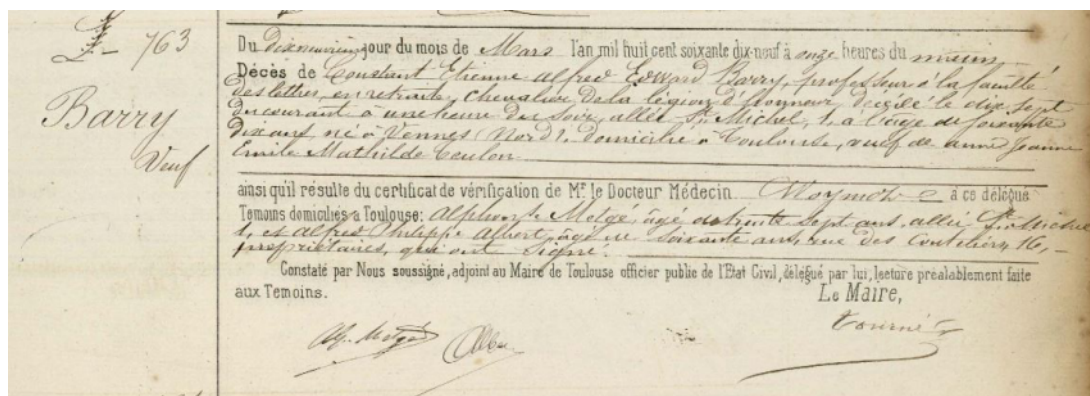 763
Barry
Veuf
Du Dix neuvième jour du mois de Mars l'an mil huit cent soixante dix-neuf à onze heures du matin
Décès de Constant Etienne Alfred Edward Barry, professeur à la faculté
des lettres, en retraite, chevalier de la légion d'honneur, décédé le dix sept
du courant à une heure du soir, allée St Michel, 1, a l'âge de soixante
dix ans né à Vennes (Nord), domicilié à Toulouse, veuf de anne Jeanne
Emile Mathilde Coulon
ainsi qu'il résulte du certificat de vérification de Mr le Docteur Médecin a ce délégué
Temoins domiciliés a Toulouse: Alphonse Metgé, âgé de trente sept ans, allée St Michel
1, et Alfred Philippe Albert, âgé de soixante ans, rue des Couteliers, 16,
propriétaires, qui ont signé.
Constaté par Nous soussigné, adjoint au Maire de Toulouse officier public de l'Etat Civil, délégué par lui, lecture préalablement faite
aux Temoins.
Le Maire,